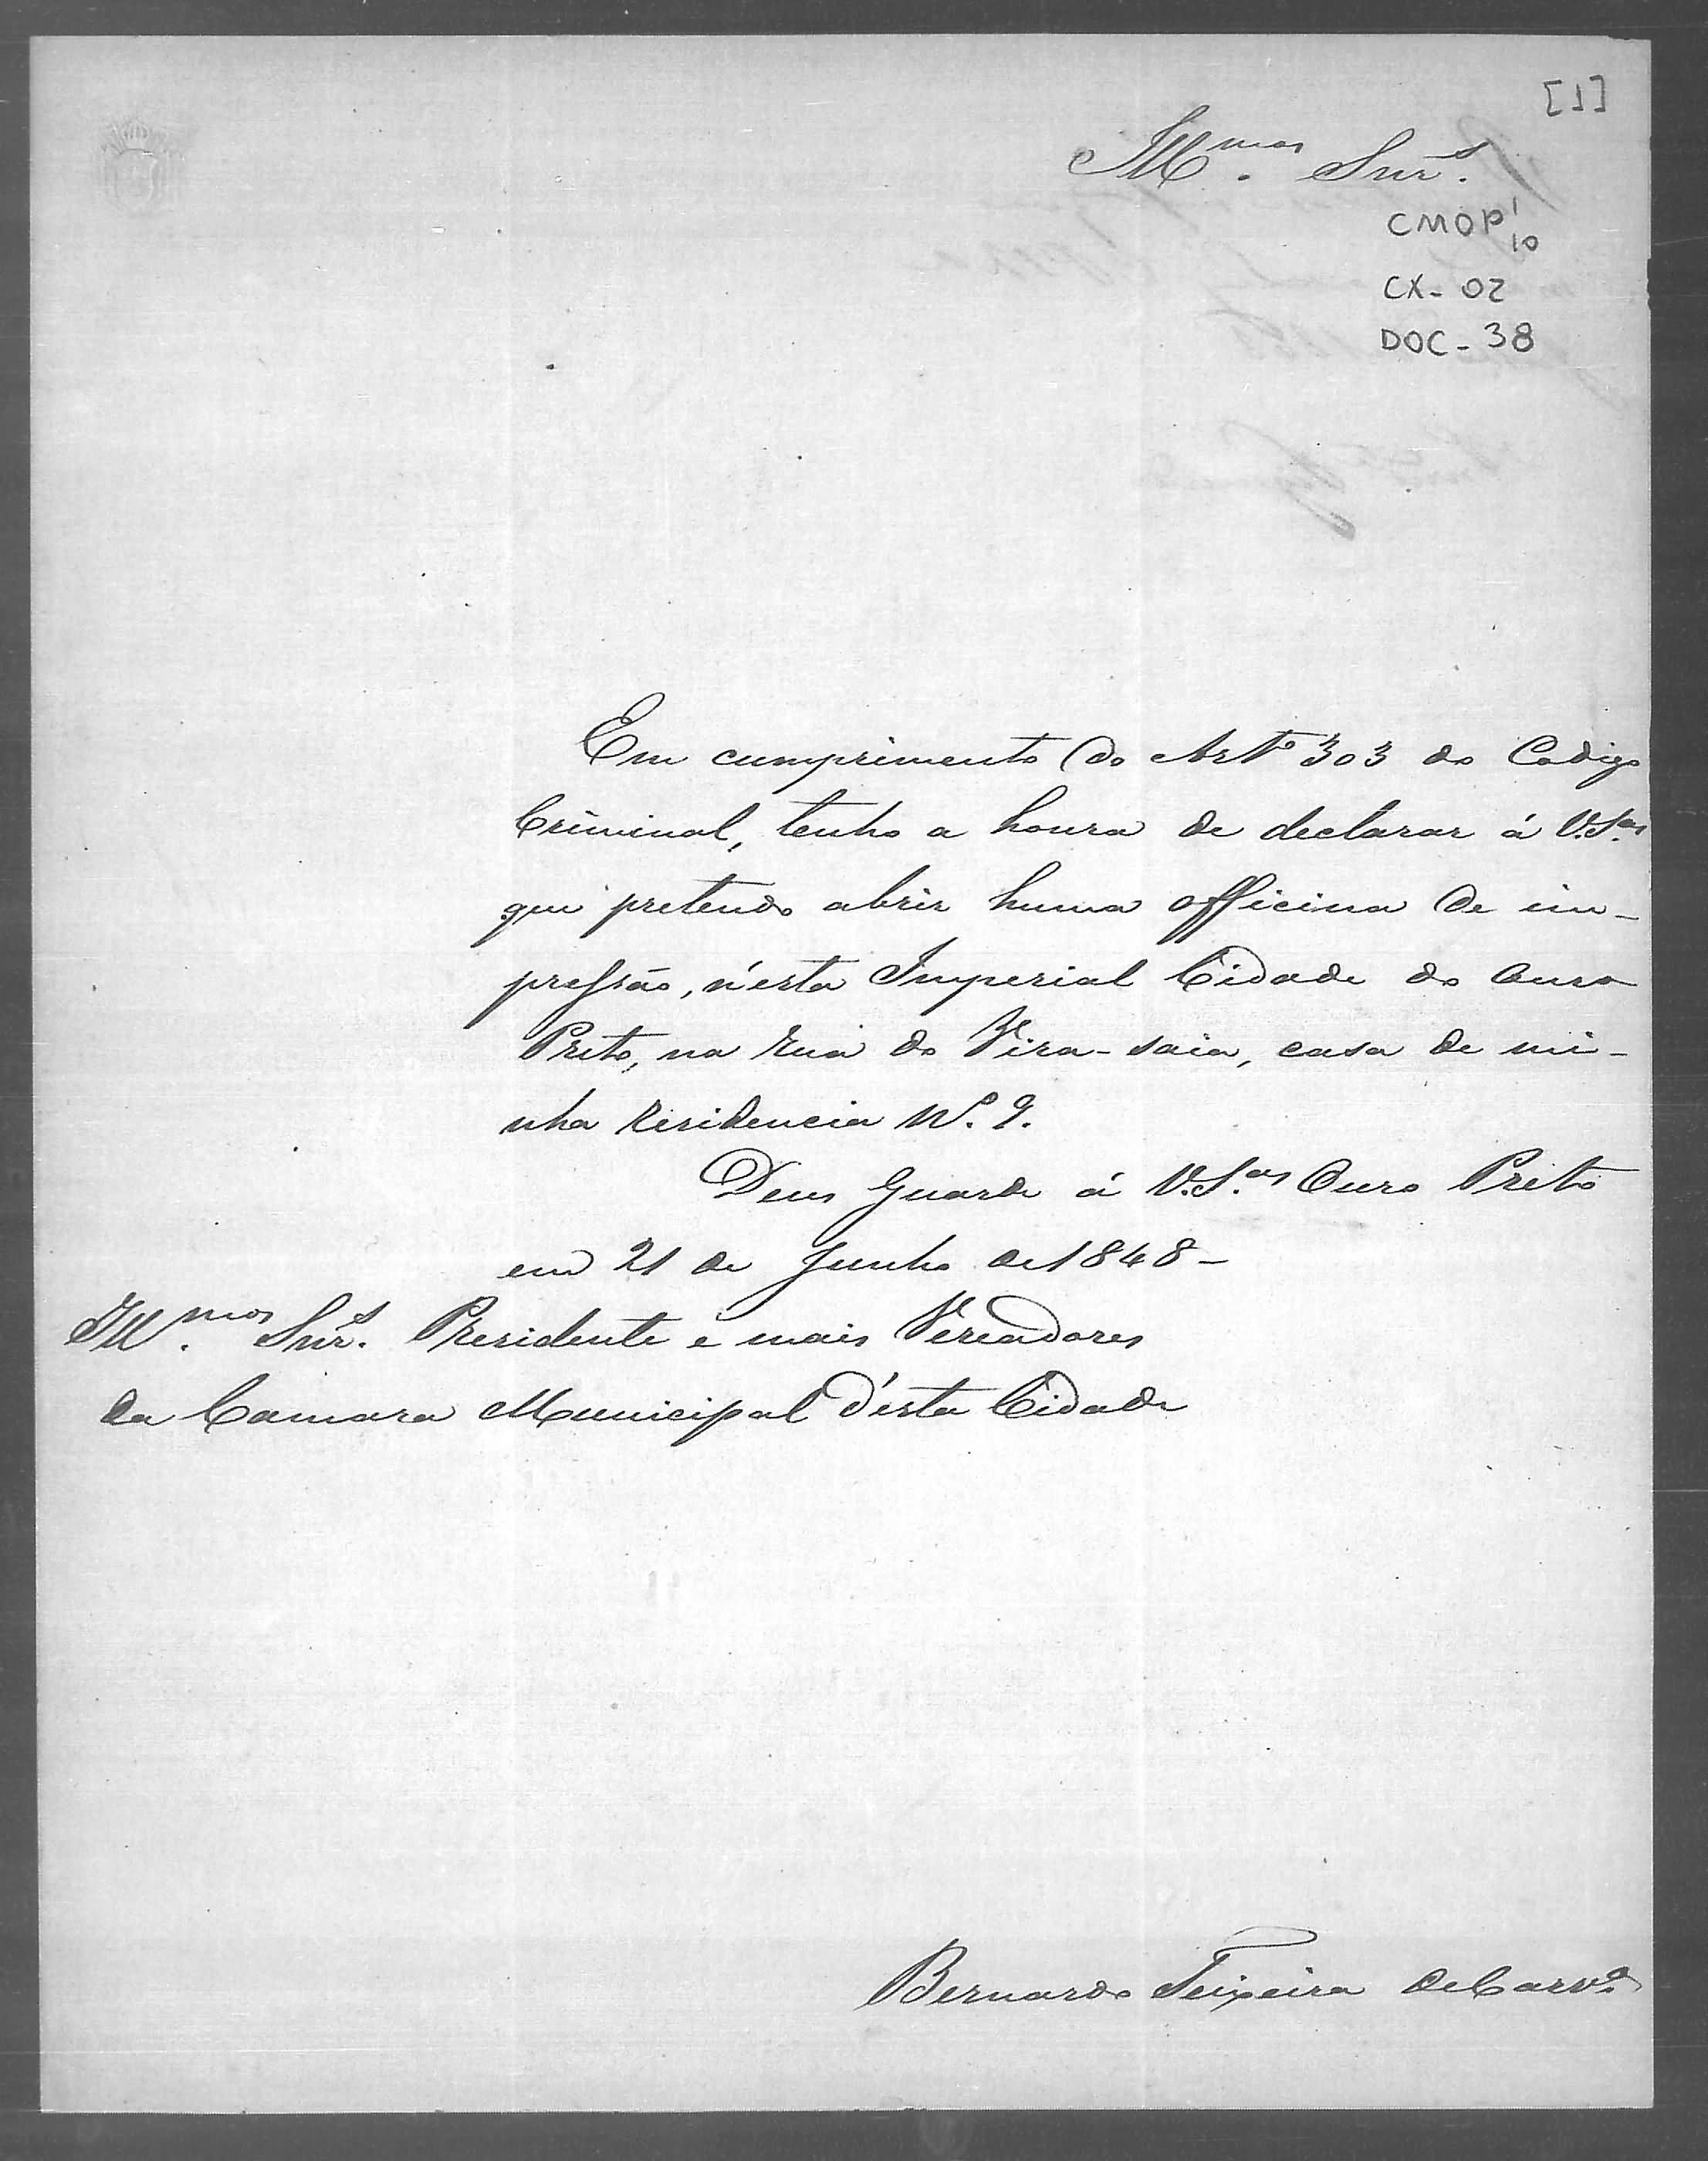 [1]
Illmos. Snrs.
CMOP 1/10
CX- 02
DOC- 38
Em cumprimento do Arto 303 do Codigo
Criminal, tenho a honra de declarar á V.Sas.
que pretendo abrir huma officina de im-
pressão, n'esta Imperial Cidade do Ouro
Preto, na rua do Vira-saia, casa de mi-
nha residencia No. 9.
Deus Guarde á V.S.as Ouro Preto
em 21 de Junho de 1848-
Illmos. Snrs. Presidente e mais Vereadores
da Camara Municipal d'esta Cidade
Bernardo Teixeira de Carvo.